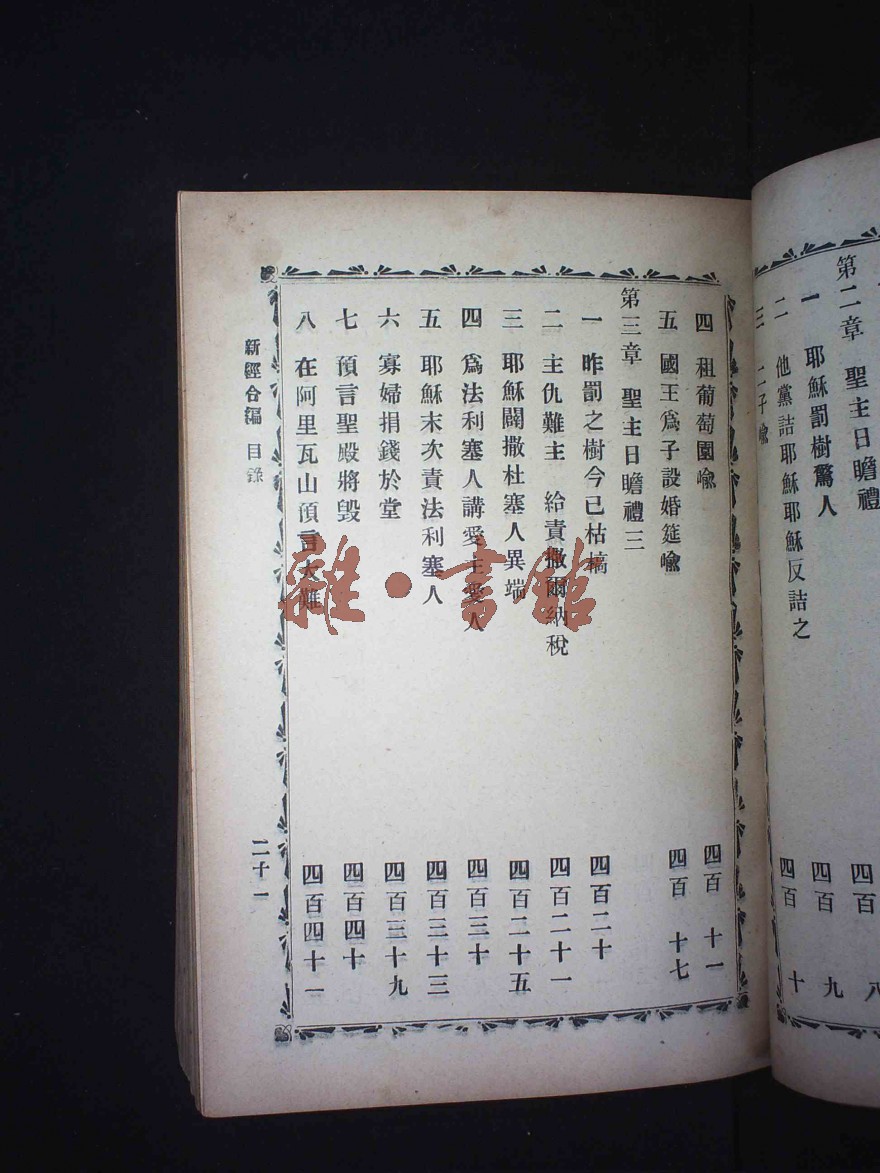 第二章 聖主日瞻禮
一 耶穌罰樹驚人 九
二 他黨詰耶穌耶穌反詰之 四百 十
三 二子喻
四 租葡萄園喻 四百 十一
五 國王爲子設婚筵喻 四百 十七
第三章 聖主日瞻禮三
一 昨罰之樹今已枯槁 四百二十
二 主仇難主 給責撒爾納稅 四百二十一
三 耶穌闢撒杜塞人異端 四百二十五
四 爲法利塞人講愛主愛人 四百三十
五 耶穌末次責法利塞人 四百三十三
六 寡婦捐錢於堂 四百三十九
七 預言聖殿將毁 四百四十
八 在阿里瓦山預言大難 四百四十一
新經合編 目錄 二十一
雜·書館